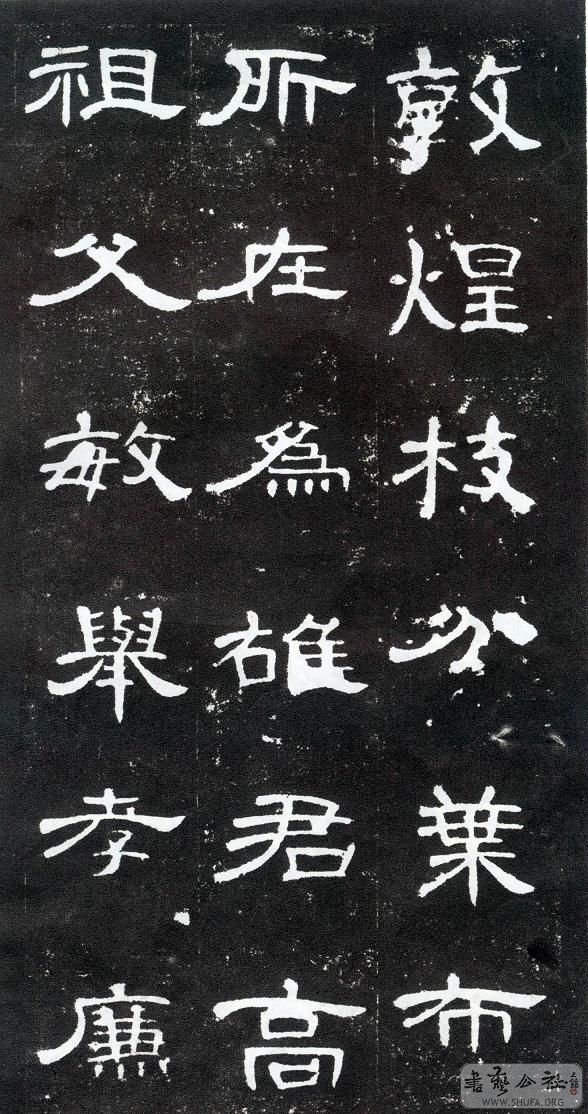 敦煌枝分葉布
所在為雄君高
祖父敏舉孝廉
書藝公社
WWW.SHUFA.ORG